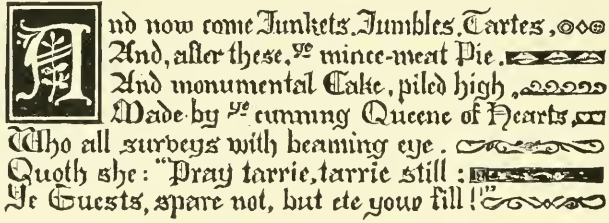 And now come Junkets, Jumbles, Tartes,
And, after these, yᵉ mince-meat Pie,
And monumental Cake, piled high,
Made by yᵉ cunning Queene of Hearts,
Who all surveys with beaming eye.
Quoth she: "Pray tarrie, tarrie still;
Ye Guests, spare not, but ete your fill!"